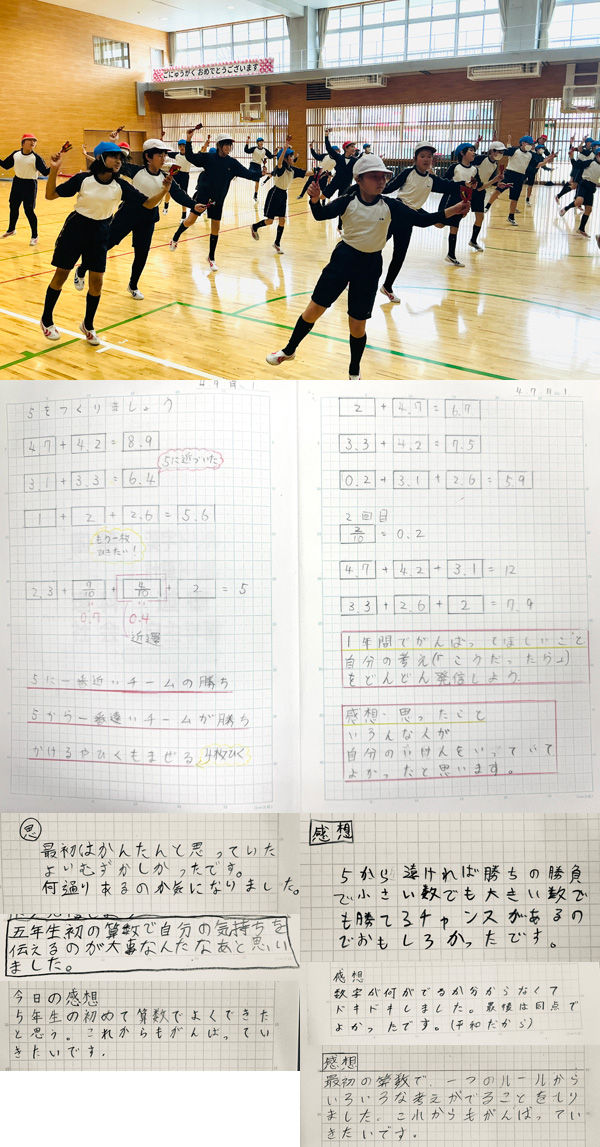 ごにゅうがく おめでとうございます
4.7 月.1
5をつくりましょう
4.7 + 4.2 = 8.9
5に近づいた
3.1 + 3.3 = 6.4
1 + 2 + 2.6 = 5.6
もう一枚
ひきたい!
2.3 + 7/10 + 4/10 + 2 = 5
0.7 0.4
近還
5に一番近いチームの勝ち
5から一番遠いチームが勝ち
かけるやひくもまぜる 4枚ひく
4.7 月.1
2 + 4.7 = 6.7
3.3 + 4.2 = 7.5
0.2 + 3.1 + 2.6 = 5.9
2回目
2/10 = 0.2
4.7 + 4.2 + 3.1 = 12
3.3 + 2.6 + 2 = 7.9
1年間でがんばってほしいこと
自分の考え(「こうだったら」)
をどんどん発信しよう
感想・思ったこと
いろんな人が
自分のいけんをいっていて
よかったと思います。
思
最初はかんたんと思っていた
よいむずかしかったです。
何通りあるのか気になりました。
五年生初の算数で自分の気持ちを
伝えるのが大事なんだなあと思い
ました。
今日の感想
5年生の初めて算数でよくできた
と思う。これからもがんばってい
きたいです.
感想
5から遠ければ勝ちの勝負
で小さい数でも大きい数で
も勝てるチャンスがあるの
でおもしろかったです。
感想
数字が何がでるか分からなくて
ドキドキしました。最後は同点で
よかったです。(平和だから)
感想
最初の算数で、一つのルールから
いろいろな考えがでることをしり
ました。これからもがんばってい
きたいです。